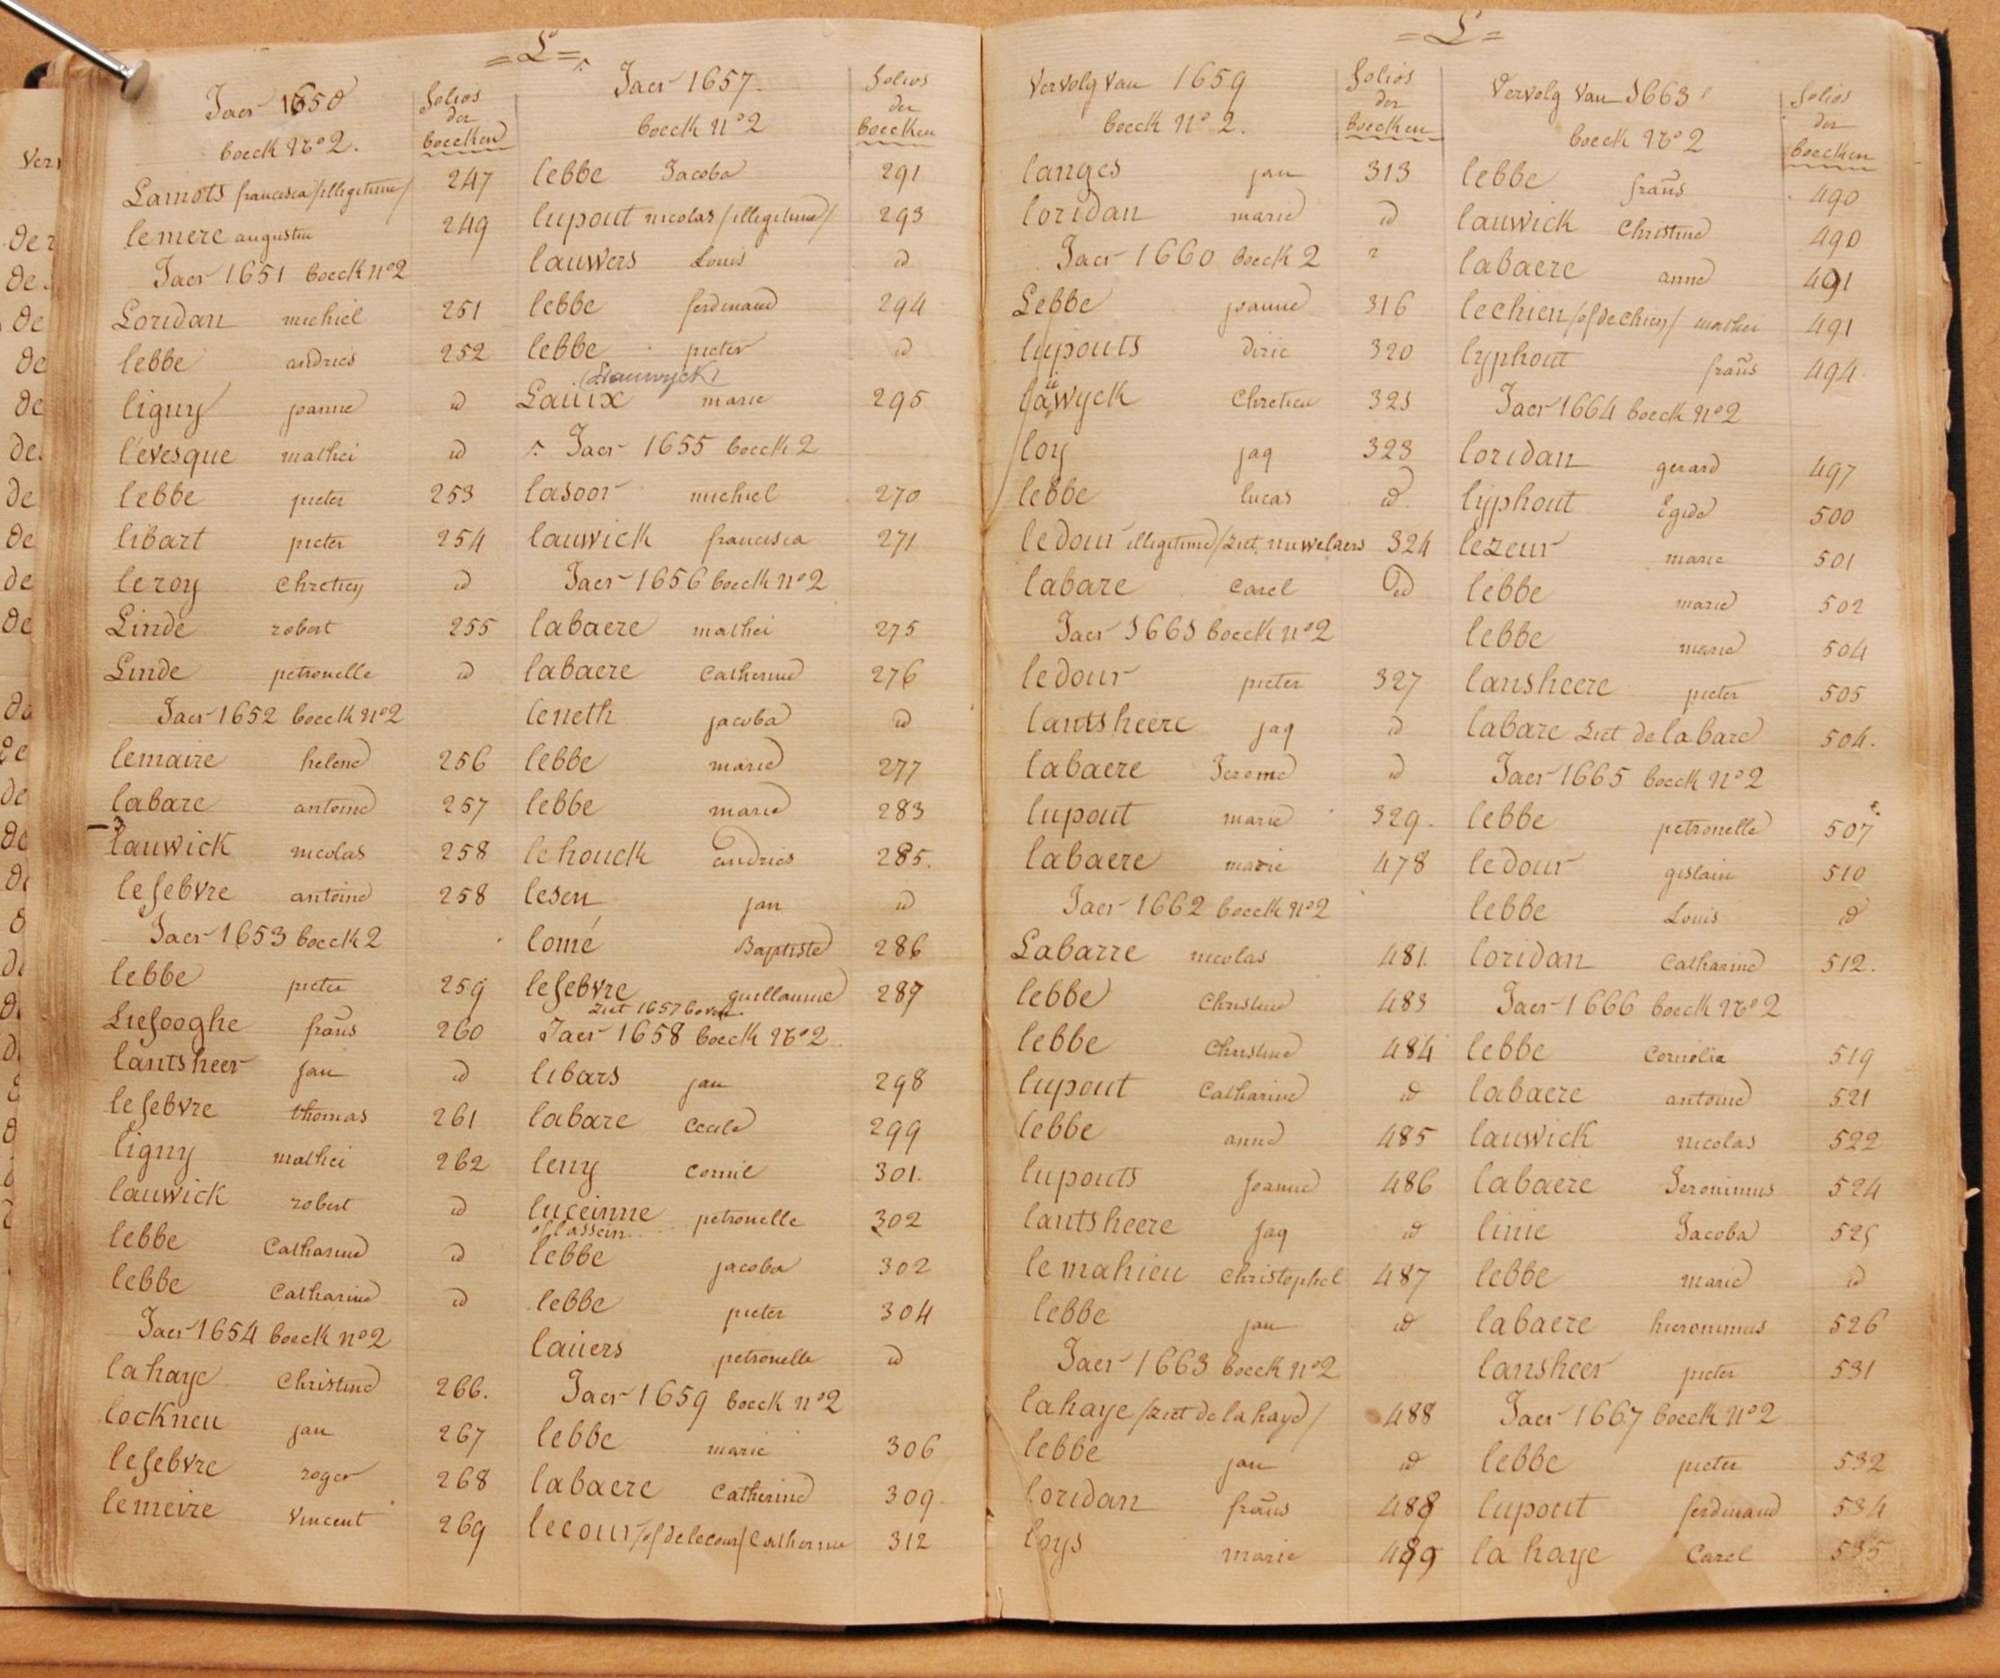 =L=
Jaer 1650
boeck No 2.
folios
der
boecken
Lamots francisca /illegitime/ 247
lemere augustin 249
Jaer 1651 boeck No 2
Loridan michiel 251
lebbe andries 252
ligny joanne id
l'évesque mathei id
lebbe pieter 253
libart pieter 254
leroy Chretien id
Linde robert 255
Linde petronelle id
Jaer 1652 boeck No 2
lemaire helene 256
labare antoine 257
lauwick nicolas 258
lefebvre antoine 258
Jaer 1653 boeck 2
lebbe pieter 259
Liefooghe frans 260
lantsheer jan id
lefebvre thomas 261
ligny mathei 262
lauwick robert id
lebbe Catharine id
lebbe Catharine id
Jaer 1654 boeck no 2
lahaye Christine 266.
lockneu jan 267
lefebvre roger 268
lemeire Vincent 269
Jaer 1657.
boeck No 2
folios
der
boecken
lebbe Jacoba 291
lupout nicolas /illegitime/ 293
lauwers Louis id
lebbe ferdinand 294
lebbe pieter id
(Lauwyck)
Lauix marie 295
Jaer 1655 boeck 2
lasoor michiel 270
lauwick francisca 271
Jaer 1656 boeck no 2
labaere mathei 275
labaere Catherine 276
leneth jacoba id
lebbe marie 277
lebbe marie 283
lehouck andries 285.
lesen jan id
lomé Baptiste 286
lefebvre guillaume 287
ziet 1657 boven.
Jaer 1658 boeck No 2
libars jan 298
labare Cecile 299
leny Cornil 301.
luceinne petronelle 302
of lassein
lebbe jacoba 302
lebbe pieter 304
lauers petronelle id
Jaer 1659 boeck no 2
lebbe marie 306
labaere Catherine 309.
lecour /of delecour/ Catherine 312
=L=
Vervolg van 1659
boeck No 2.
folios
der
boecken
langes jan 313
loridan marie id
Jaer 1660 boeck 2
Lebbe joanne 316
lupouts diric 320
lawyck Chretien 321
loy jaq 323
lebbe lucas id
ledour illegitime /ziet nuwelaers 324
labare Carel id
Jaer 1661 boeck no 2
ledour pieter 327
lantsheere jaq id
labaere Jerome id
lupout marie 329.
labaere marie 478
Jaer 1662 boeck No 2
Labarre nicolas 481.
lebbe Christine 483
lebbe Christine 484
lupout Catharine id
lebbe anne 485
lupouts Joanne 486
lantsheere Jaq id
lemahieu Christophel 487
lebbe jan id
Jaer 1663 boeck no 2
lahaye /ziet de lahaye/ 488
lebbe jan id
loridan frans 488
loys marie 489
Vervolg van 1663
boeck No 2
folios
der
boecken
lebbe frans 490
lauwick Christine 490
labaere anne 491
lechien /of dechien/ mathei 491
lyphout frans 494
Jaer 1664 boeck No 2
loridan gerard 497
lyphout Egide 500
lezeur marie 501
lebbe marie 502
lebbe marie 504
lansheere pieter 505
labare ziet de la bare 504.
Jaer 1665 boeck No 2
lebbe petronelle 507
ledour gislain 510
lebbe Louis id
loridan Catharine 512.
Jaer 1666 boeck No 2
lebbe Cornelia 519
labaere antoine 521
lauwick nicolas 522
labaere Jeronimus 524
linie Jacoba 525
lebbe marie id
labaere hieronimus 526
lansheer pieter 531
Jaer 1667 boeck No 2
lebbe pieter 532
lupout ferdinand 534
la haye Carel 535